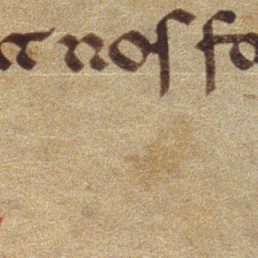 a nos fa